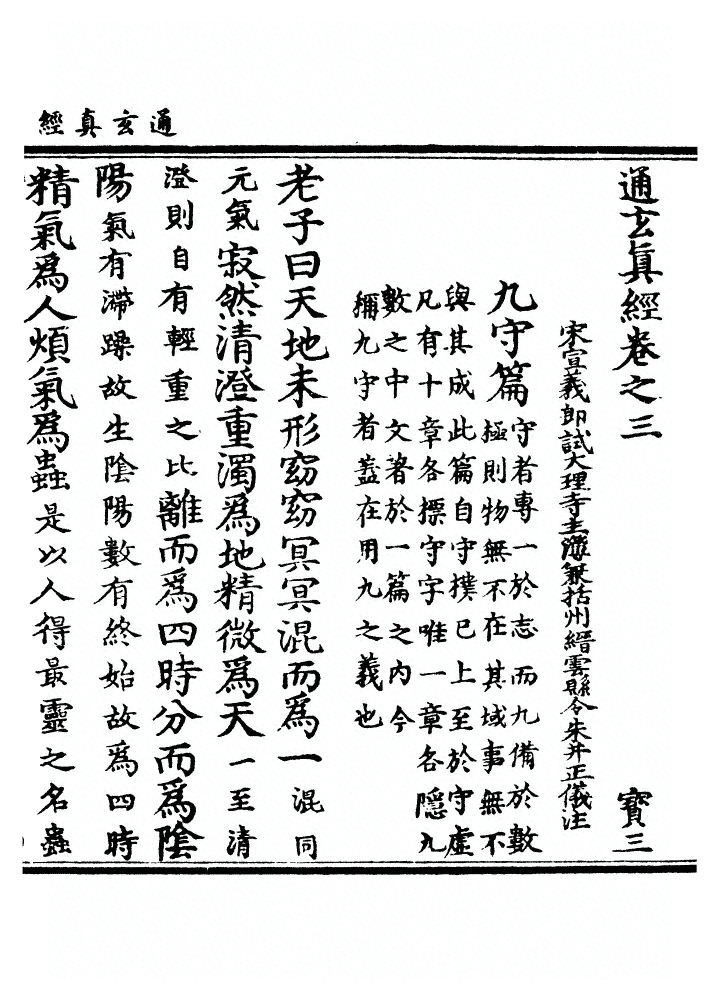 通玄真經
通玄眞經卷之三 寶三
宋宣義郎試大理寺主簿兼括州縉雲縣令朱弁正儀注
九守篇 守者專一於志而九備於數
極則物無不在其域事無不
與其成此篇自守樸已上至於守虛
凡有十章各標守字唯一章各隱九
數之中文著於一篇之內今
稱九守者蓋在用九之義也
老子曰天地未形窈窈冥冥混而爲一混同
元氣寂然清澄重濁爲地精微爲天一至清
澄則自有輕重之比離而爲四時分而爲陰
陽氣有滯躁故生陰陽數有終始故爲四時
精氣爲人煩氣爲蟲是以人得最靈之名蟲